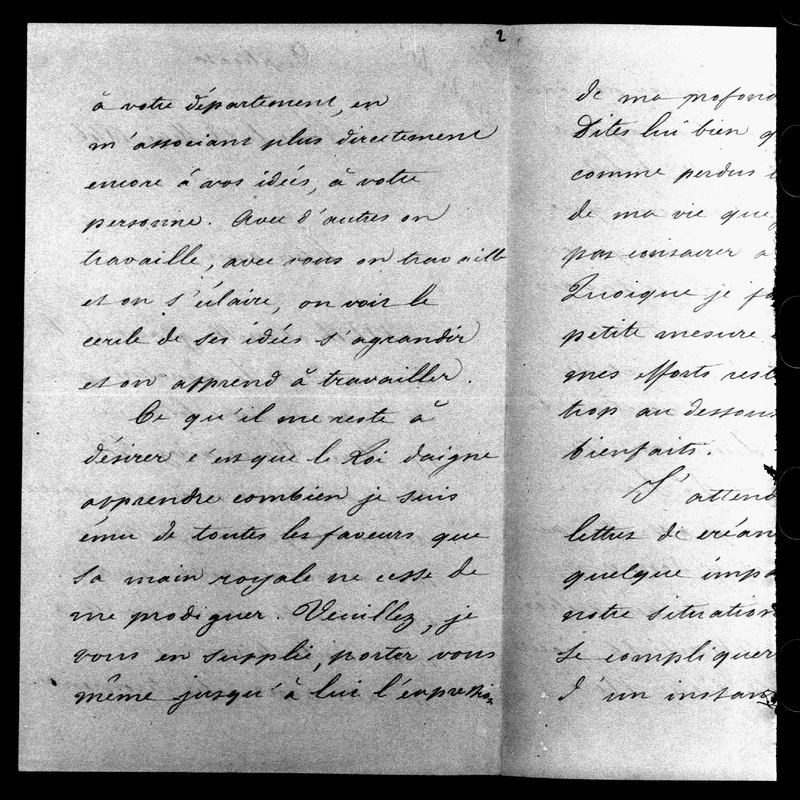 2
à votre département, en
m'associant plus directement
encore à vos idées, à votre
personne. Avec d'autres on
travaille, avec vous on travaille
et on s'éclaire, on voit le
cercle de ses idées s'agrandir
et on apprend à travailler.
Ce qu'il me reste à
désirer c'est que le Roi daigne
apprendre combien je suis
ému de toutes les faveurs que
sa main royale ne cesse de
me prodiguer. Veuillez, je
vous en supplie, porter vous
même jusqu'à lui l'expression
de ma profond
Dites lui bien q
comme perdus
de ma vie que
pas consacrer a
Quoique je fa
petite mesure
mes efforts rest
trop au dessous
bienfaits.
J'attend
lettres de créan
quelque impo
notre situation
se compliquer
d'un instan